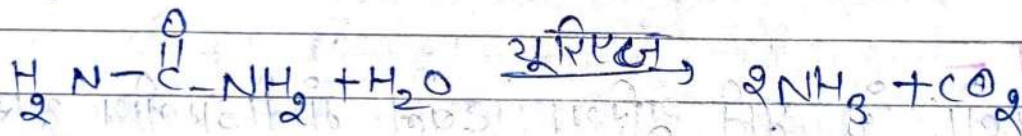 O
||
H₂N-C-NH₂ + H₂O यूरिएज → 2NH₃ + CO₂